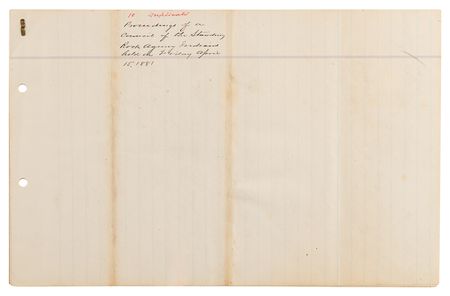 10 Duplicate
Proceedings of a
Council of the Standing
Rock Agency Indians
held on Friday April
15, 1881